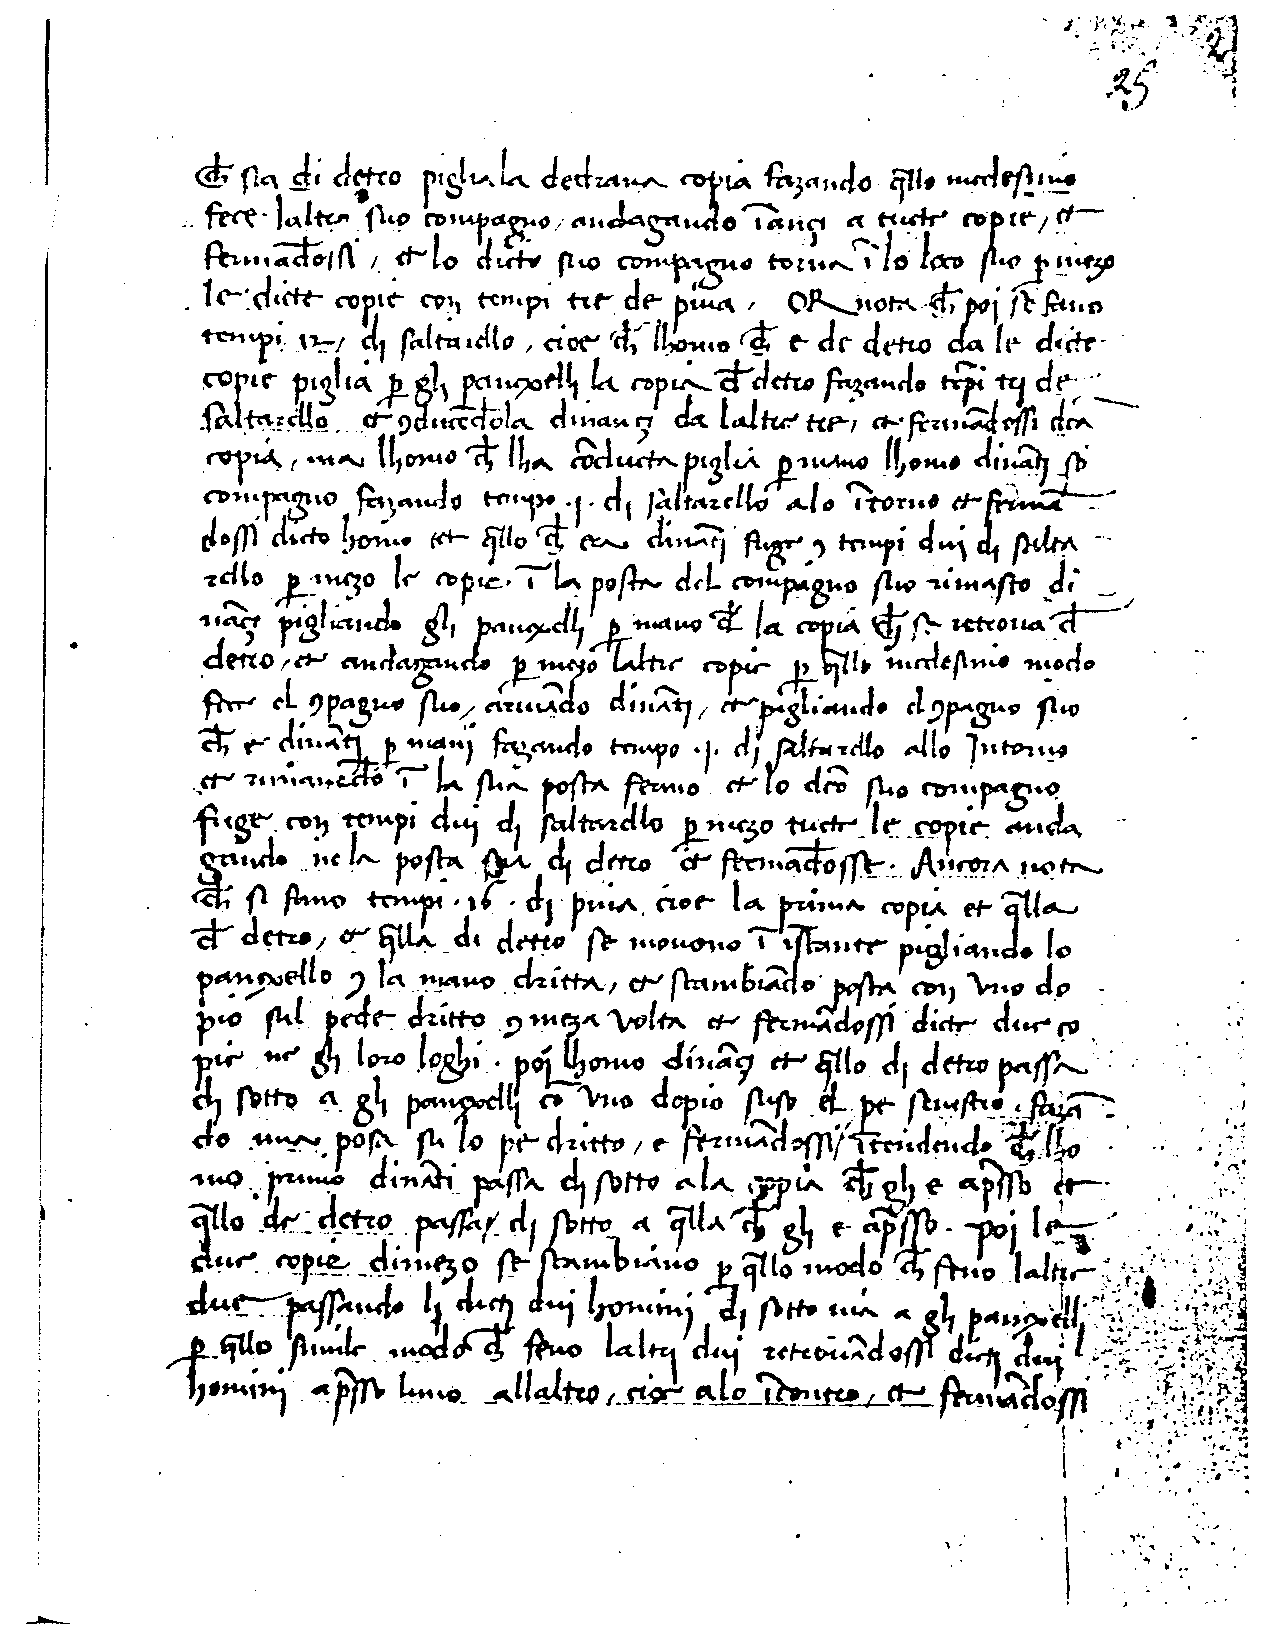 25
ch̄ sta di detro piglia la dedrana copia fazando q̄llo medesimo
fece laltro suo compagno, andagando ī anzi a tucte copie, et
fermādossi, et lo dicto suo compagno torna ī lo loco suo p̄ mezo
le dicte copie con tempi tre de piva, OR nota ch̄ poi se fano
tempi 12, di saltarello, cioe ch̄ lhomo ch̄ e de detro da le dicte
copie piglia p̄ gli panixelli la copia d̄ detro fazando tēpi trj de
saltarello et ꝯducēdola dinanzi da laltre tre, et fermādossi dc̄a
copia, ma lhomo ch̄ lha cōducta piglia p̄ mano lhomo dināti so
compagno fazando tempo .j. di saltarello a lo ītorno et fermā
dossi dicto homo et q̄llo ch̄ era dināti fuge ꝯ tempi dui di salta
rello p̄ mezo le copie. ī la posta del compagno suo rimasto di
nāzi pigliando gli panixelli p̄ mano d̄ la copia ch̄ se retrova d̄
detro, et andagando p̄ mezo laltre copie p̄ q̄llo medesimo modo
fece el ꝯpagno suo, arivādo dināti, et pigliando el ꝯpagno suo
ch̄ e dināti p̄ mani fazando tempo .j. di saltarello allo Intorno
et rimanēdo ī la sua posta fermo et lo dc̄o suo compagno
fuge con tempi dui di saltarello p̄ mezo tucte le copie anda
gando ne la posta sua di detro et fermādosse. Ancora nota
ch̄ si fano tempi .16. di piva cioe la prima copia et q̄lla
d̄ detro, et q̄lla di detro se moveno ī istante pigliando lo
panixello ꝯ la mano dritta, et scambiādo posta con uno do
pio sul pede dritto ꝯ meza volta et fermādossi dicte due co
pie ne gli loro loghi. poi lhomo dināzi et q̄llo di detro passa
di sotto a gli panixelli cō uno dopio suso el pe senestro fazā
do una posa su lo pe dritto, e fermādossi, ītendendo ch̄ lho
mo primo dināti passa di sotto a la copia ch̄ gli e ap̄sso et
q̄llo de detro passa, di sotto a q̄lla ch̄ gli e ap̄sso. poi le
due copie dimezo se scambiano p̄ q̄llo modo ch̄ feno laltre
due passando li dicti dui homini di sotto via a gli panixelli
p̄ q̄llo simile modo ch̄ feno laltri dui retrovādossi dicti dui
homini ap̄sso luno allaltro, cioe a lo īcontro, et fermādossi